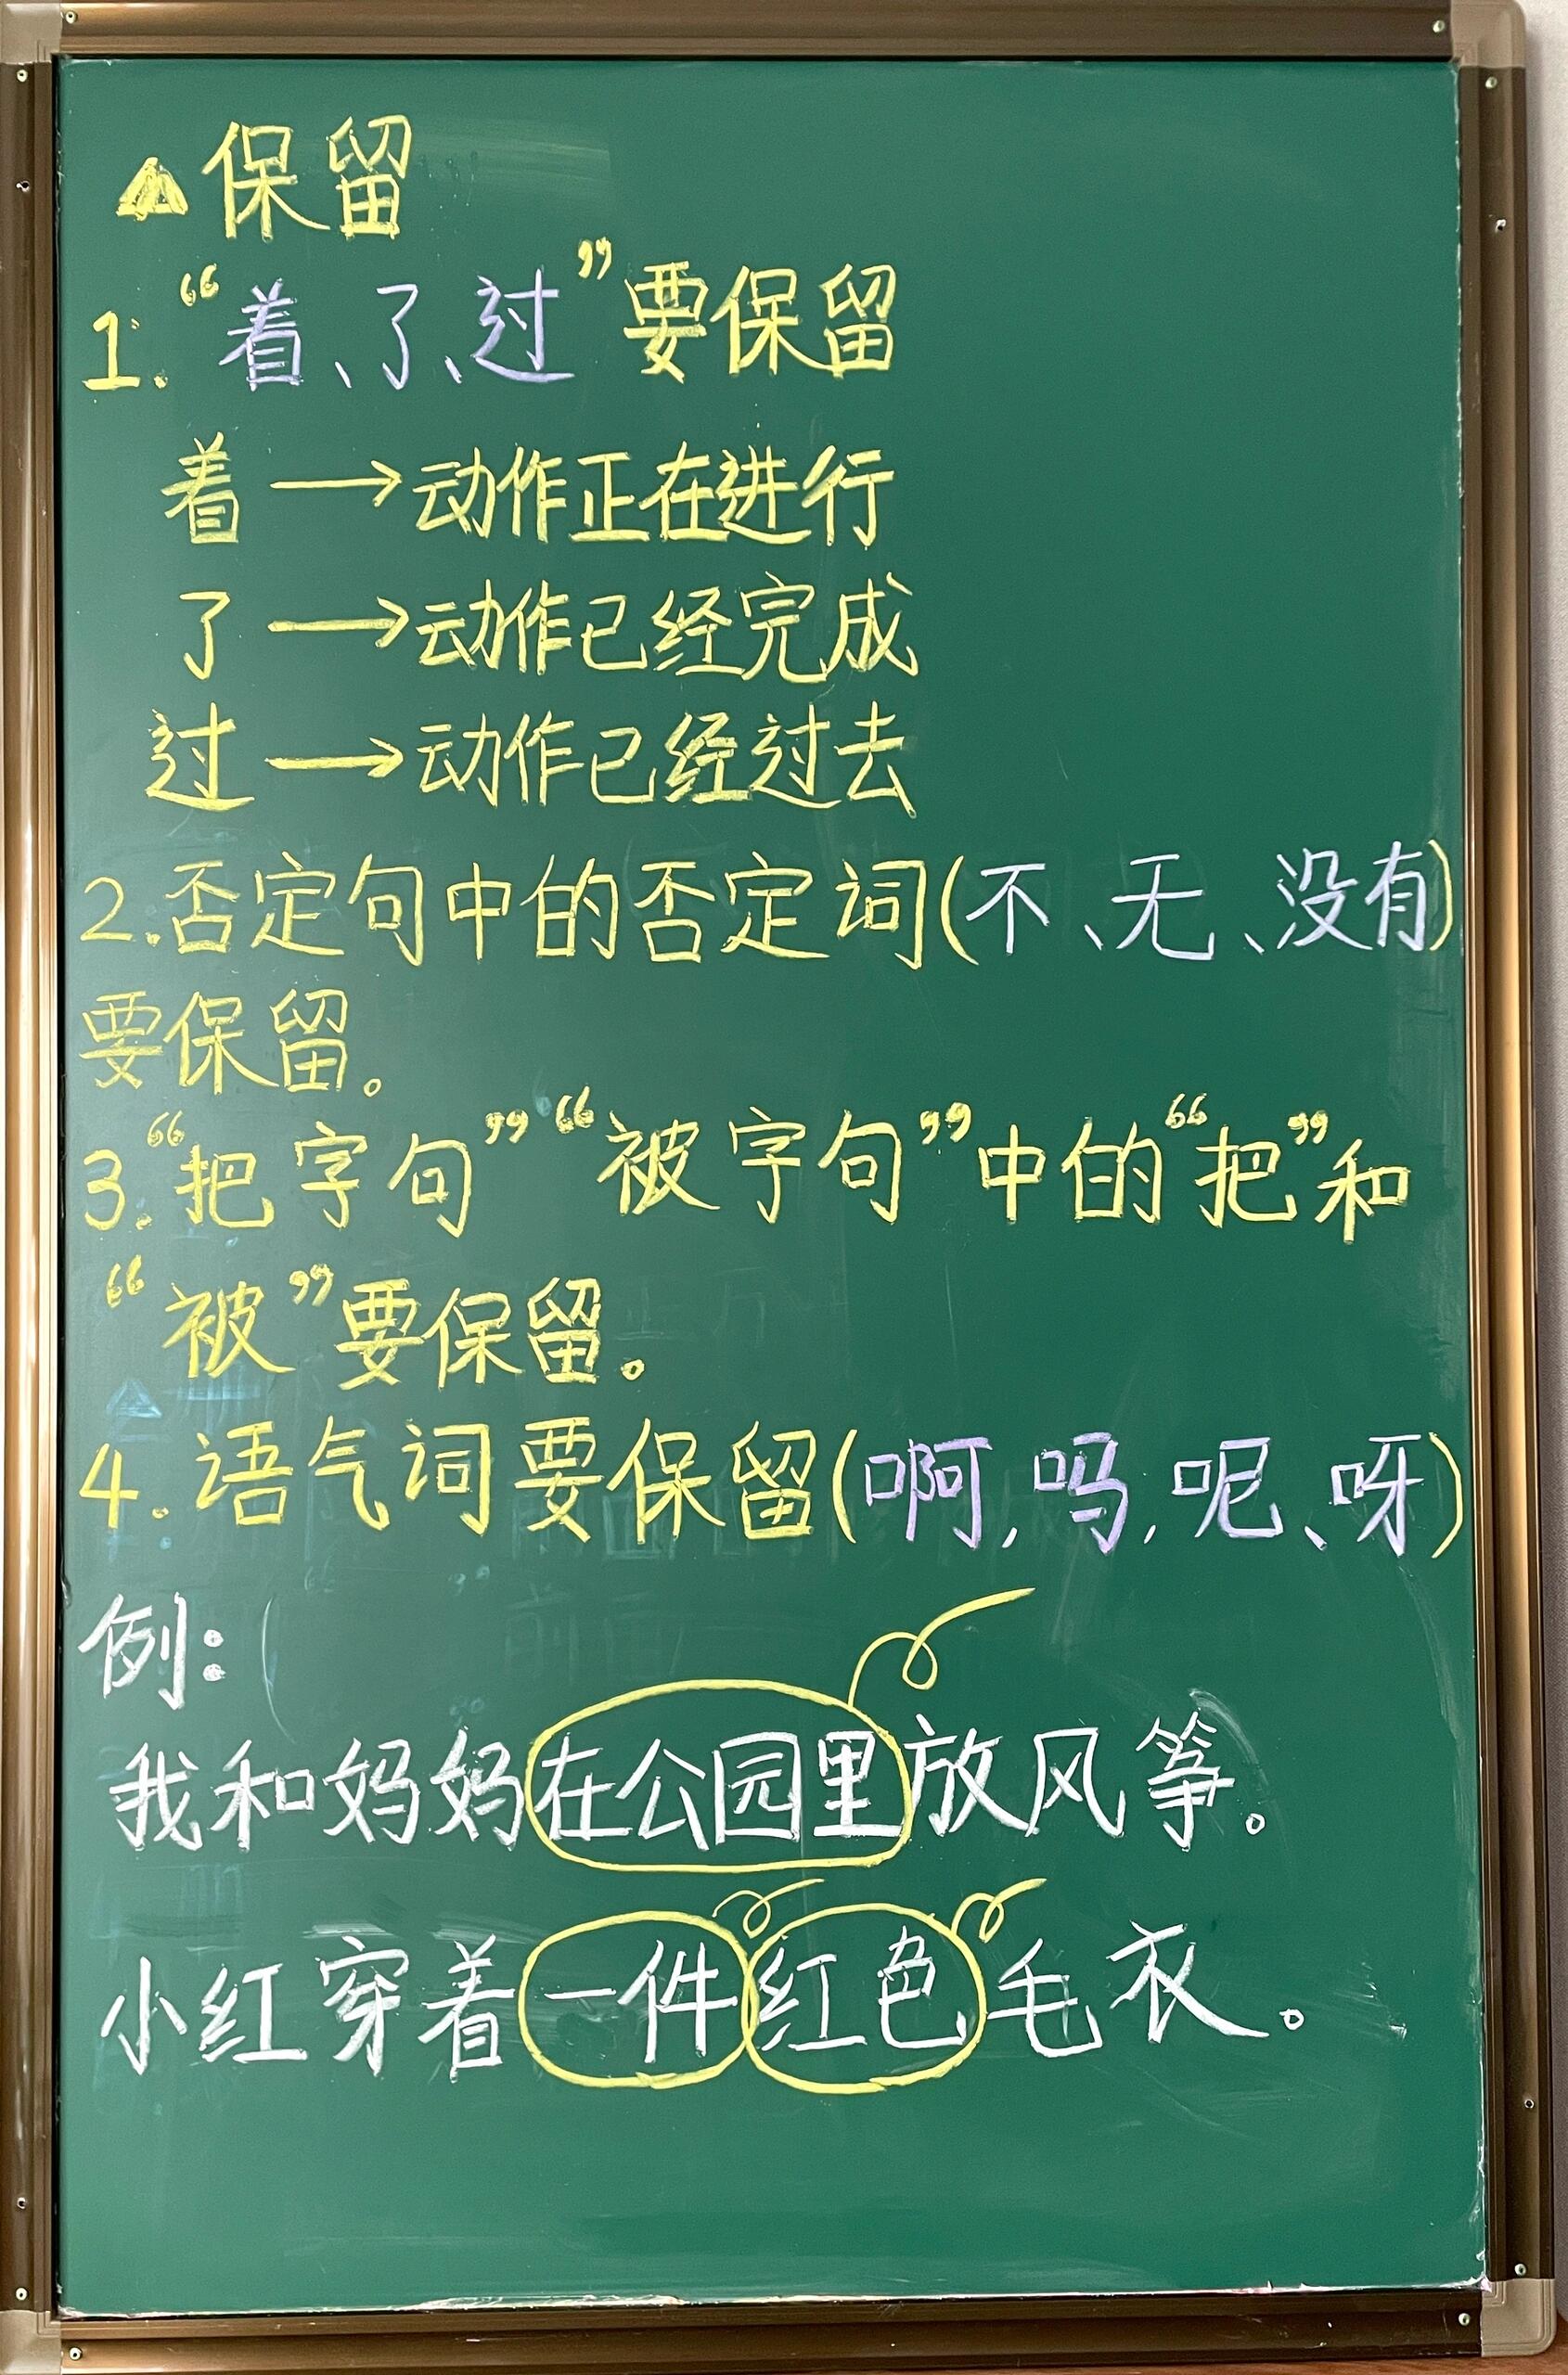 ▲保留
1.“着、了、过”要保留
着→动作正在进行
了→动作已经完成
过→动作已经过去
2.否定句中的否定词(不、无、没有)
要保留。
3.“把字句”“被字句”中的“把”和
“被”要保留。
4.语气词要保留(啊,吗,呢、呀)
例:
我和妈妈在公园里放风筝。
小红穿着一件红色毛衣。